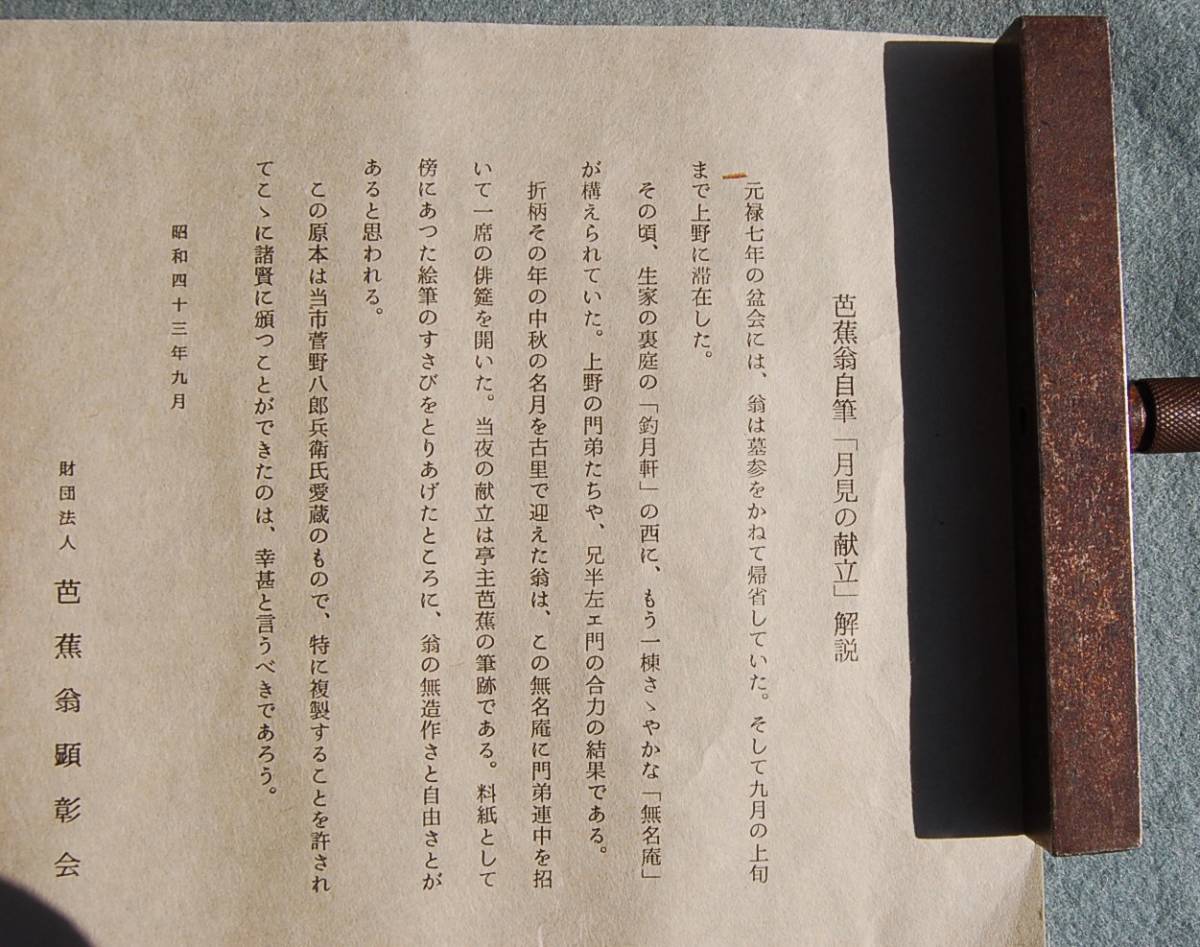 芭蕉翁自筆「月見の献立」解説
元禄七年の盆会には、翁は墓参をかねて帰省していた。そして九月の上旬
まで上野に滞在した。
その頃、生家の裏庭の「釣月軒」の西に、もう一棟さゝやかな「無名庵」
が構えられていた。上野の門弟たちや、兄半左ェ門の合力の結果である。
折柄その年の中秋の名月を古里で迎えた翁は、この無名庵に門弟連中を招
いて一席の俳筵を開いた。当夜の献立は亭主芭蕉の筆跡である。料紙として
傍にあつた絵筆のすさびをとりあげたところに、翁の無造作さと自由さとが
あると思われる。
この原本は当市菅野八郎兵衛氏愛蔵のもので、特に複製することを許され
てこゝに諸賢に頒つことができたのは、幸甚と言うべきであろう。
昭和四十三年九月
財団法人 芭蕉翁顕彰会